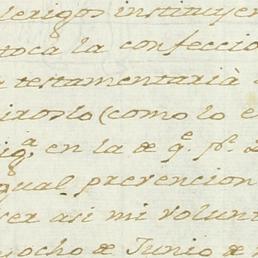 clerigos instituyen
toca la confeccio
testamentaria
iroslo (como lo e
en la de q.e p.r
igual prevencion
ser asi mi volunt
ocho de Junio de